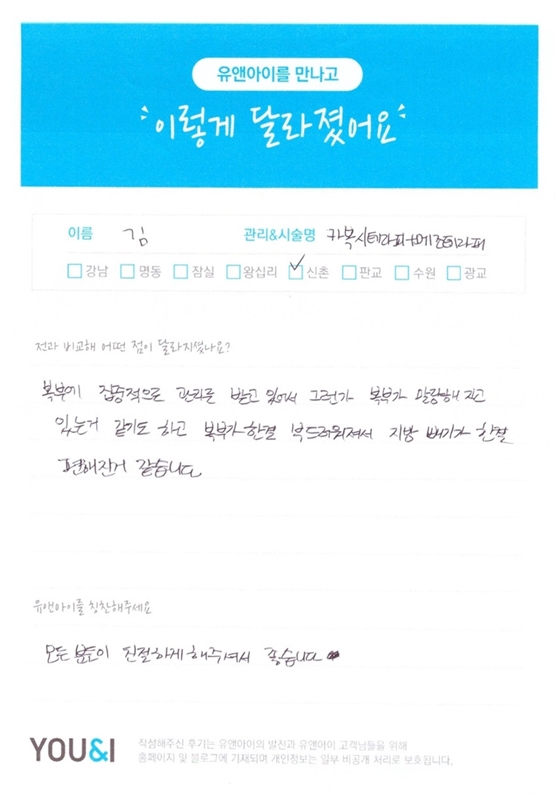 유앤아이를 만나고
이렇게 달라졌어요
이름 김 관리&시술명 카복시테라피+메조테라피
강남 명동 잠실 왕십리 신촌 판교 수원 광교
전과 비교해 어떤 점이 달라지셨나요?
복부에 집중적으로 관리를 받고 있어서 그런가 복부가 말랑해 지고
있는거 같기도 하고 복부가 한결 부드러워져서 지방 빼기가 한결
편해진거 같습니다
유앤아이를 칭찬해주세요
모든 분들이 친절하게 해주셔서 좋습니다
YOU&I 작성해주신 후기는 유앤아이의 발전과 유앤아이 고객님들을 위해
홈페이지 및 블로그에 기재되며 개인정보는 일부 비공개 처리로 보호됩니다.